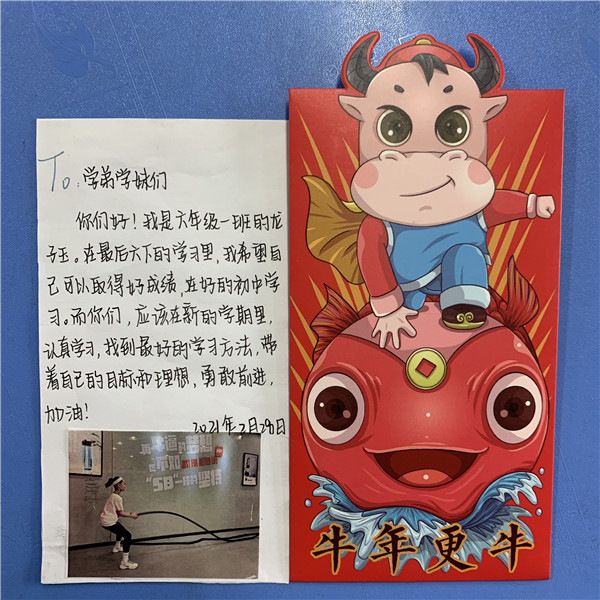 To:学弟学妹们
你们好!我是六年级一班的龙
子玉。在最后六下的学习里,我希望自
己可以取得好成绩,在好的初中学
习。而你们,应该在新的学期里,
认真学习,找到最好的学习方法,带
着自己的目标和理想,勇敢前进,
加油!
2021年2月28日
牛年更牛